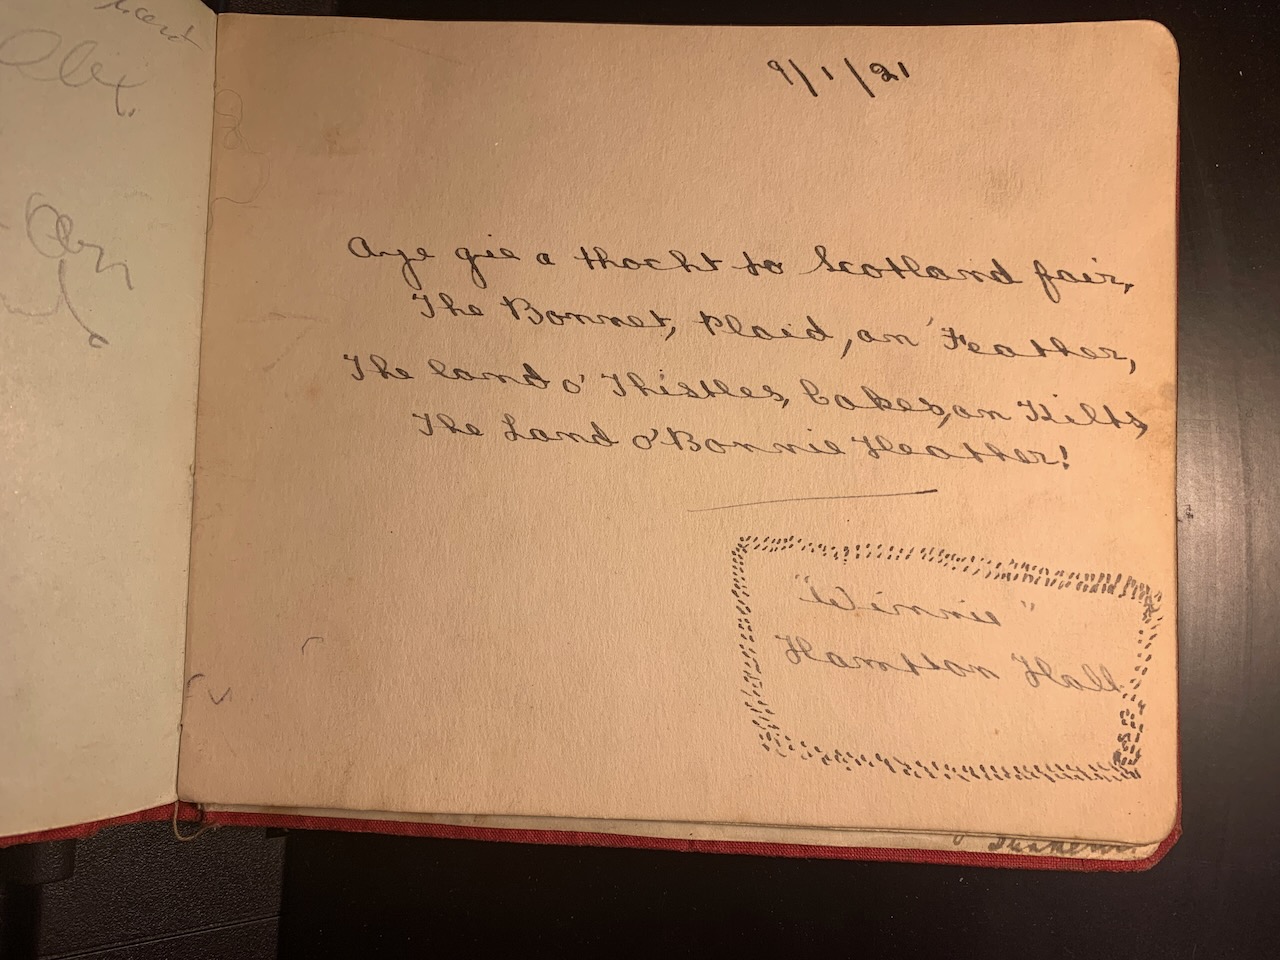 Alex.
9/1/21
Aye gie a thocht to Scotland fair,
The Bonnet, Plaid, an' Feather,
The land o' Thistles, Cakes, an Kilts,
The Land o' Bonnie Heather!
"Winnie"
Hampton Hall